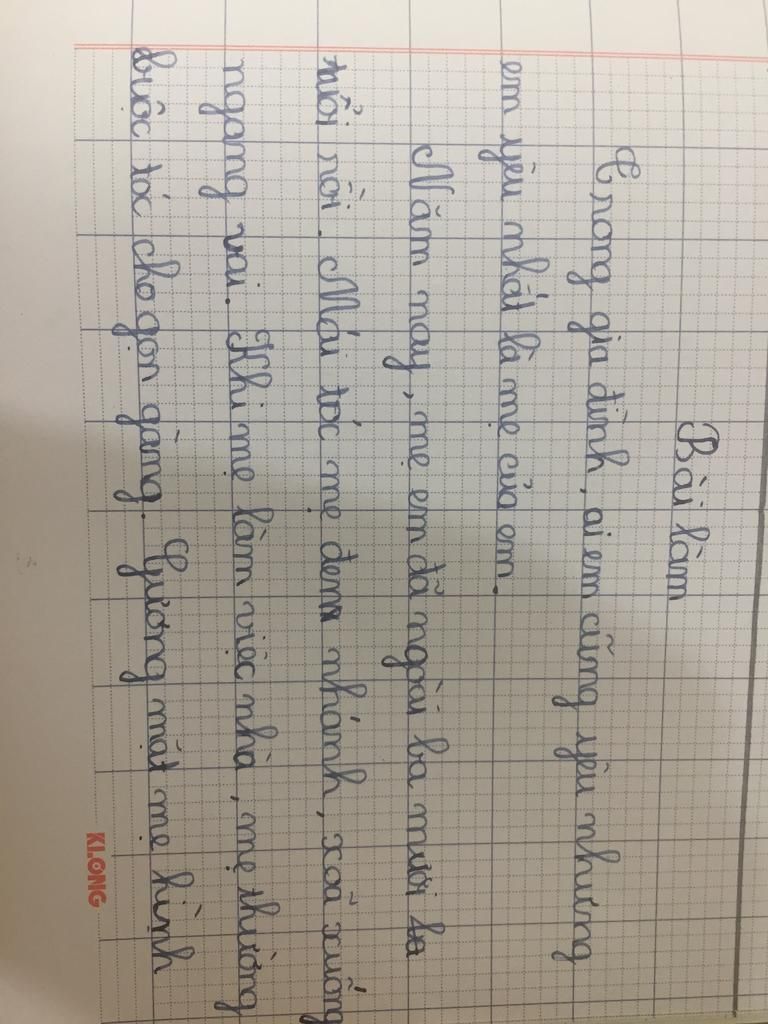 Bài làm
Trong gia đình, ai em cũng yêu nhưng
em yêu nhất là mẹ của em.
Năm nay, mẹ em đã ngoài ba mươi
tuổi rồi. Mái tóc mẹ đen nhánh, xoã xuống
ngang vai. Khi mẹ làm việc nhà, mẹ thường
buộc tóc cho gọn gàng. Gương mặt mẹ hình
KLONG